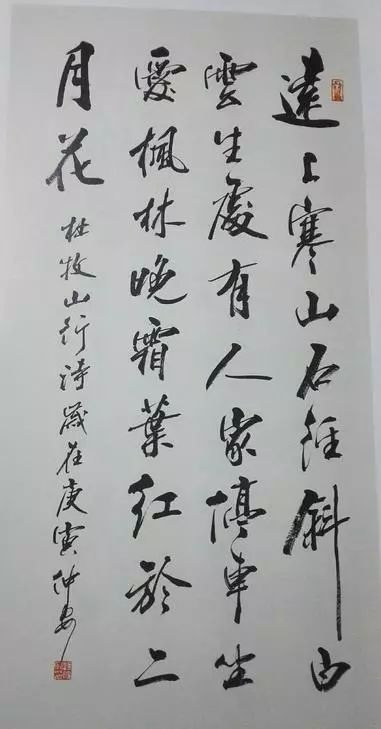 遠上寒山石徑斜白
雲生處有人家停車坐
愛楓林晚霜葉紅於二
月花
杜牧山行詩歲在庚寅仲安